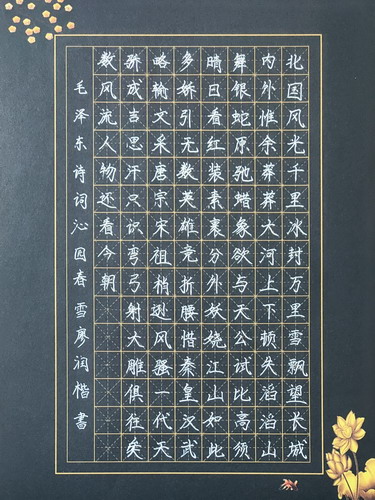 北国风光千里冰封万里雪飘望长城
内外惟余莽莽大河上下顿失滔滔山
舞银蛇原驰蜡象欲与天公试比高须
晴日看红装素裹分外妖娆江山如此
多娇引无数英雄竞折腰惜秦皇汉武
略输文采唐宗宋祖稍逊风骚一代天
骄成吉思汗只识弯弓射大雕俱往矣
数风流人物还看今朝
毛泽东诗词沁园春雪廖润楷書